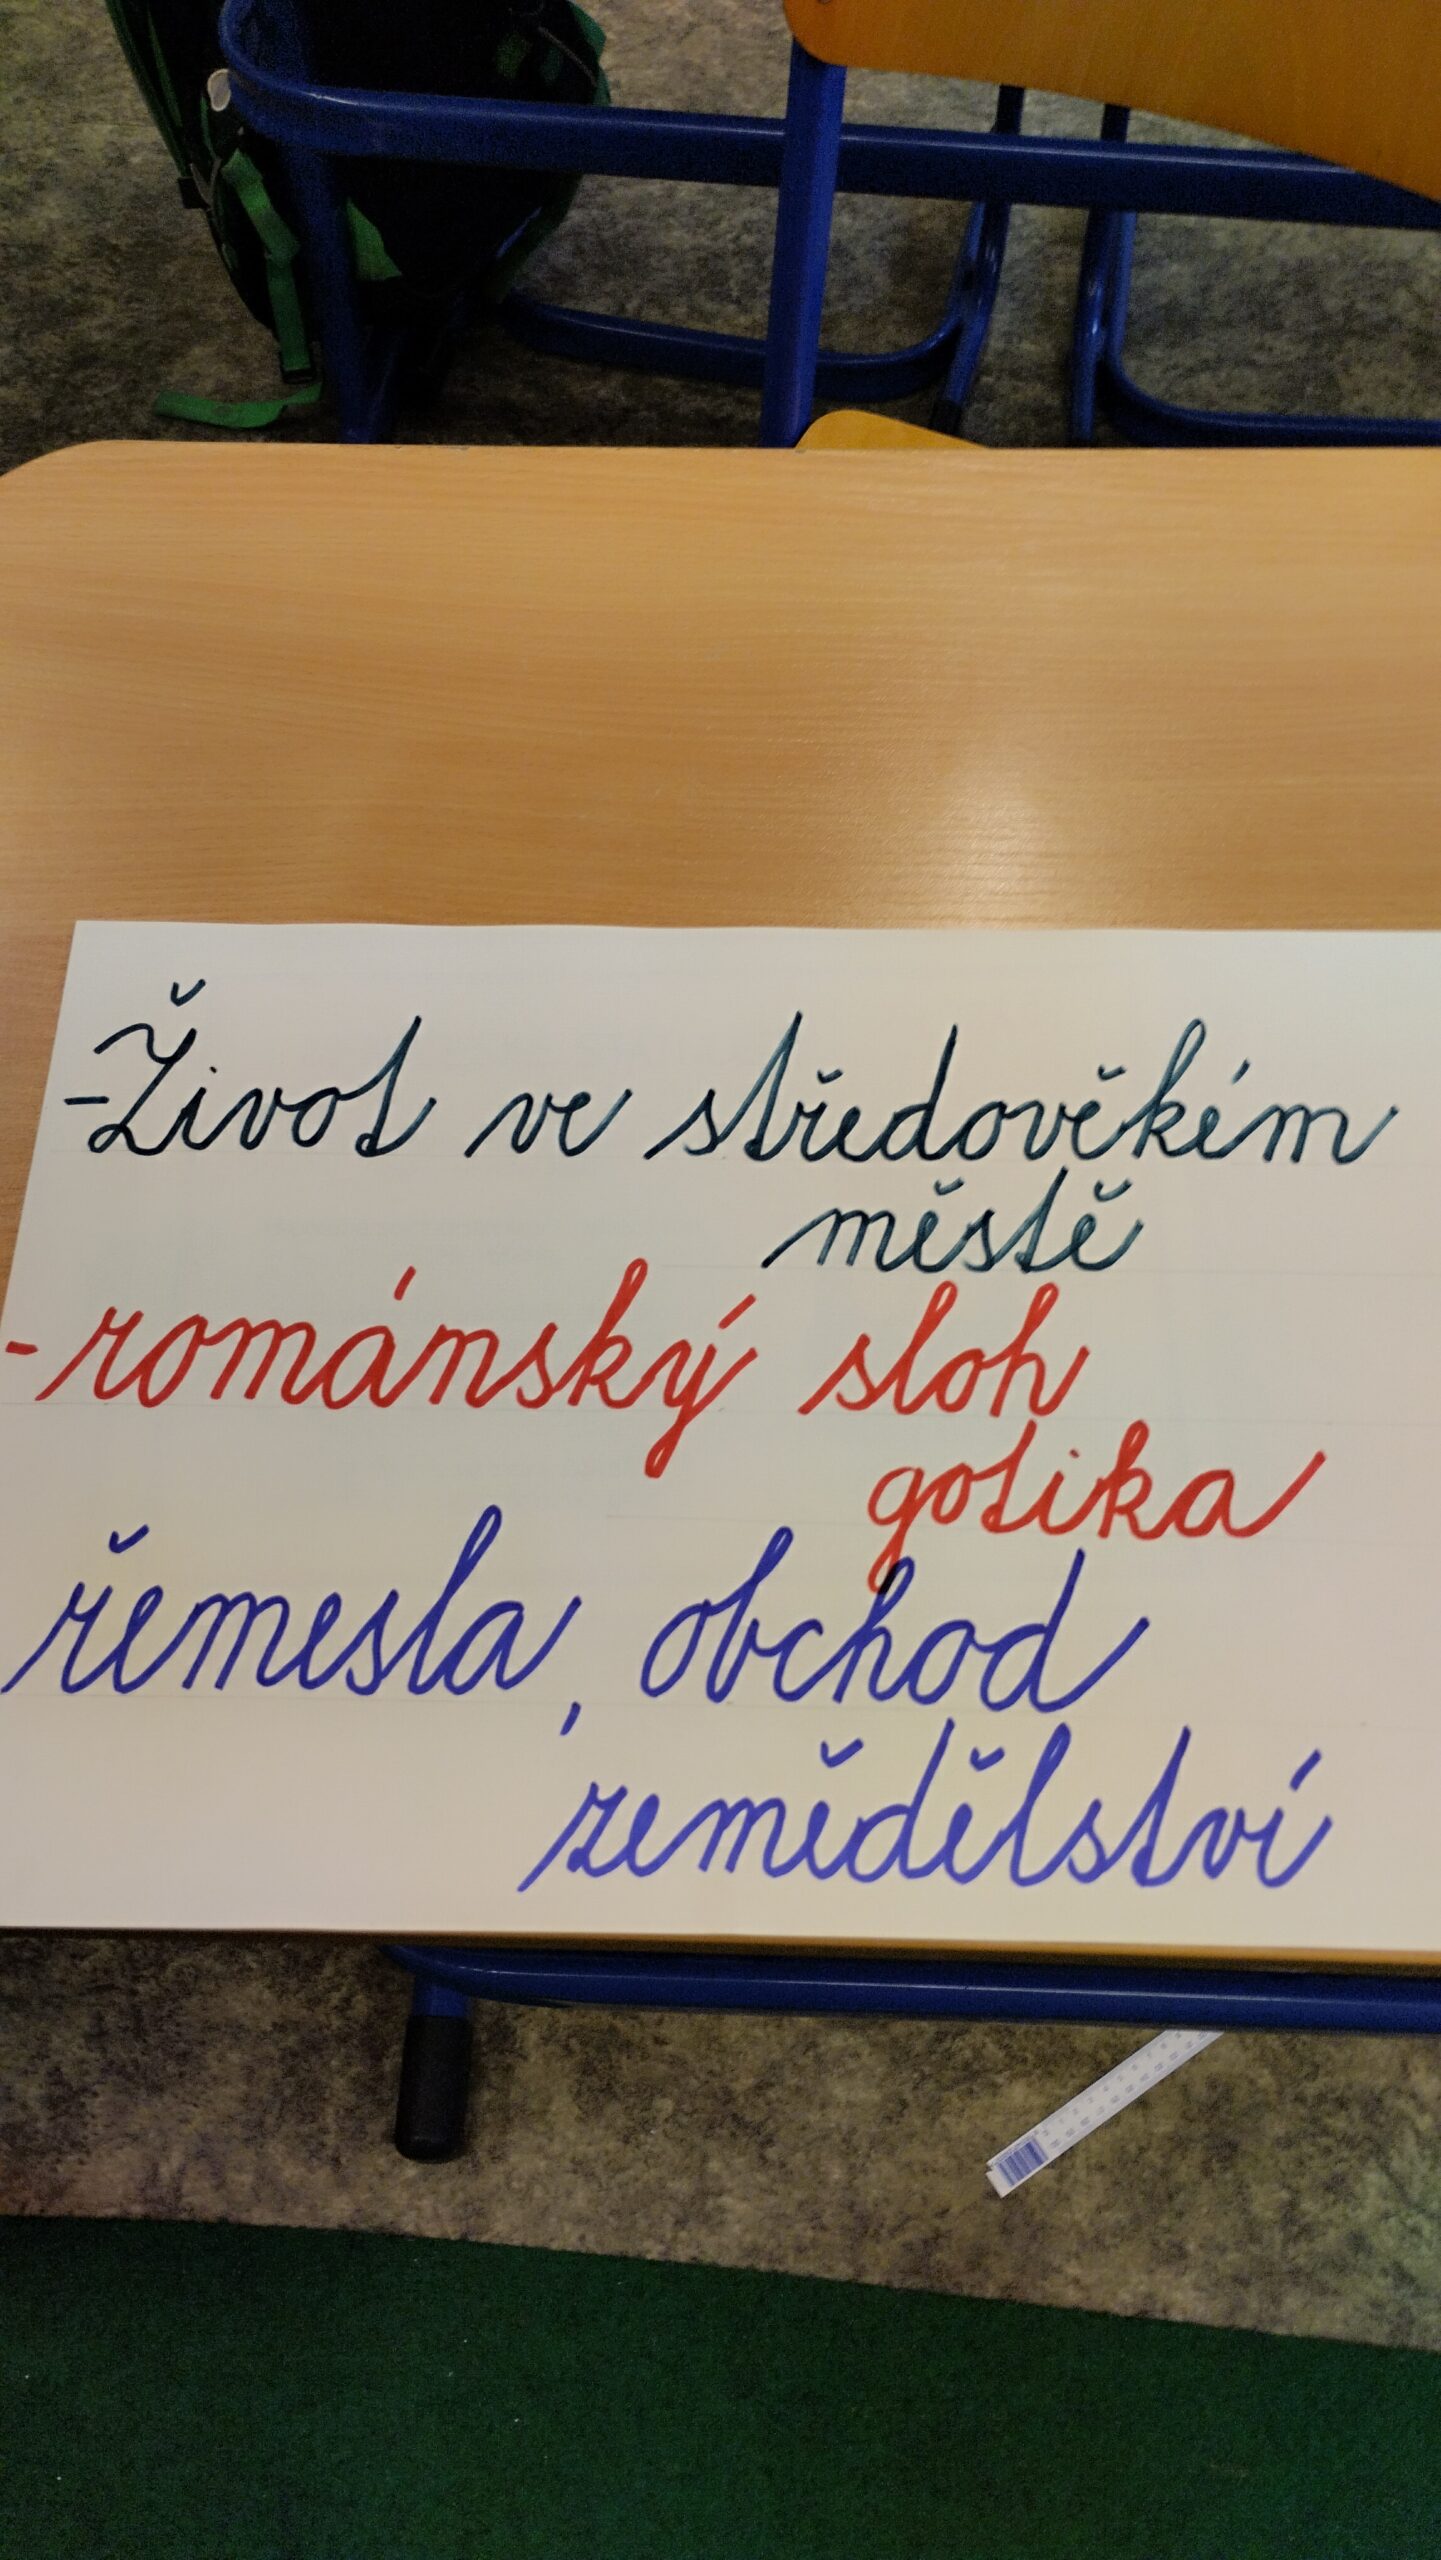 -Život ve středověkém
městě
-románský sloh
gotika
řemesla, obchod
zemědělství